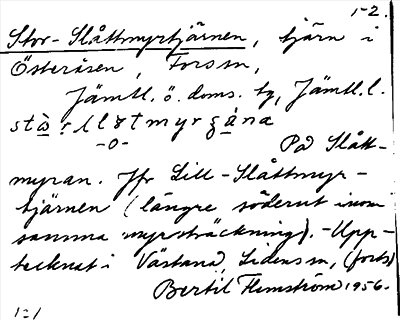 1-2.
Stor-Slåttmyrtjärnen, tjärn i
Österåsen, Forssn,
Jämtl. ö. doms. tg, Jämtl. l.
-o-
På Slått-
myran. Jfr Lill-Slåttmyr-
tjärnen (längre söderut inom
samma myrsträckning). - Upp-
tecknat i Västanå, Lidens sn, (forts)
Bertil Flemström 1956.
1-1